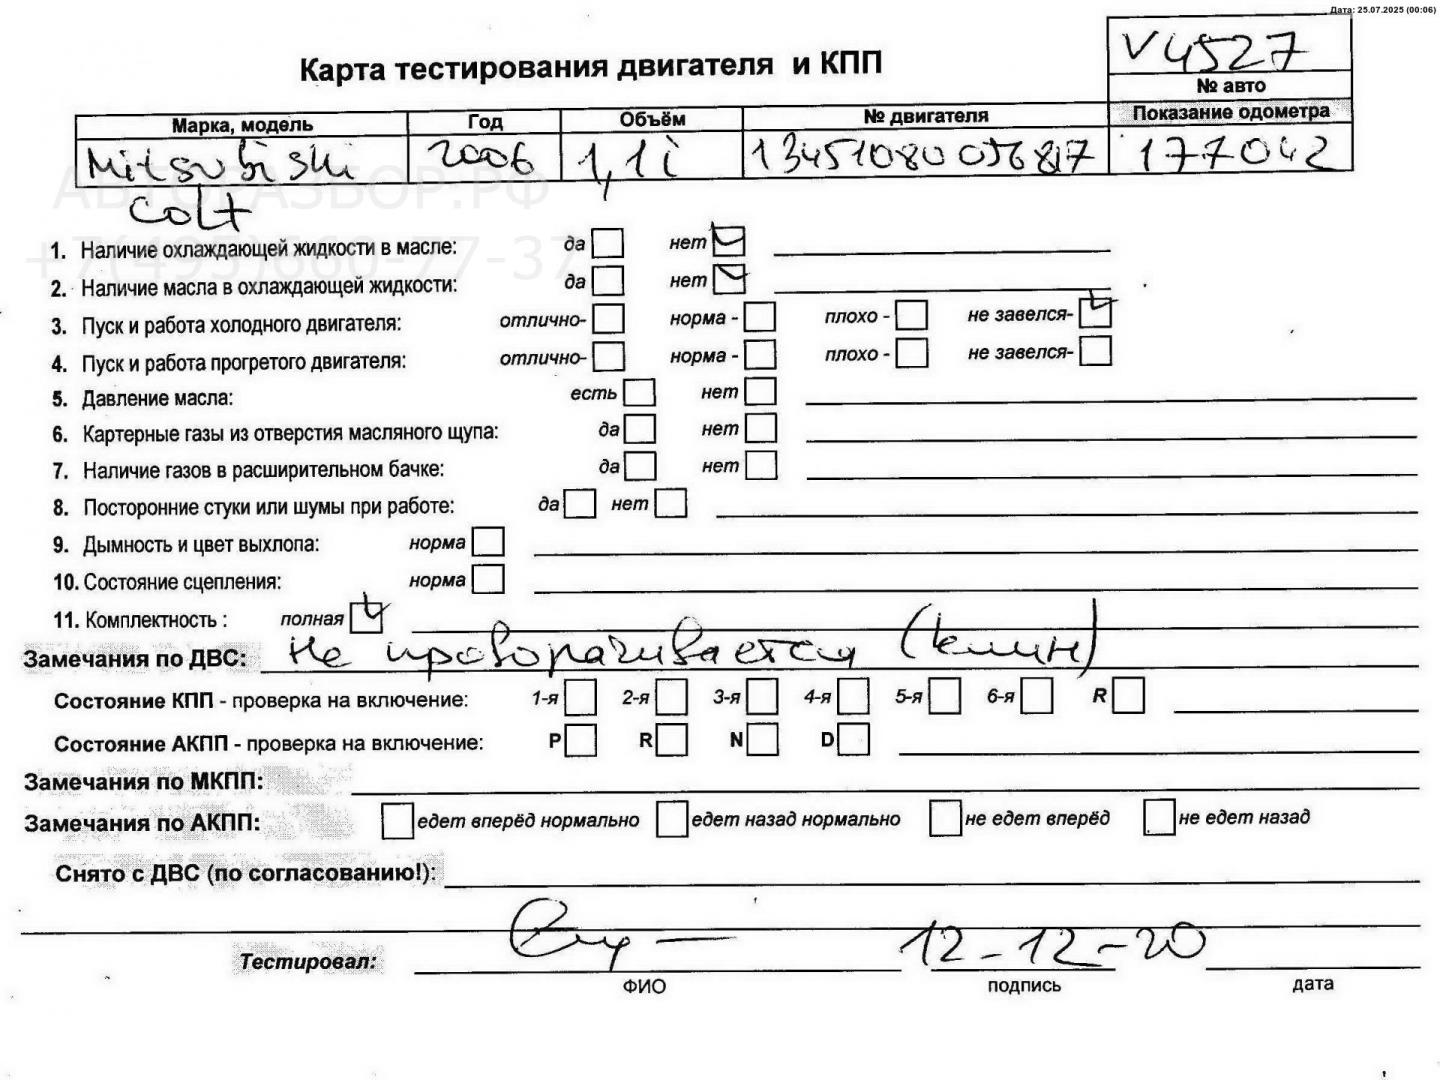 Дата: 25.07.2025 (00:06)
V4527
Карта тестирования двигателя и КПП
№ авто
Марка, модель Год Объём № двигателя Показание одометра
Mitsubishi 2006 1,1i 177042
Colt
АВТОРАЗБОР.РФ
+7(495)660-77-37
1. Наличие охлаждающей жидкости в масле: да нет
2. Наличие масла в охлаждающей жидкости: да нет
3. Пуск и работа холодного двигателя: отлично- норма - плохо - не завелся-
4. Пуск и работа прогретого двигателя: отлично- норма - плохо - не завелся-
5. Давление масла: есть нет
6. Картерные газы из отверстия масляного щупа: да нет
7. Наличие газов в расширительном бачке: да нет
8. Посторонние стуки или шумы при работе: да нет
9. Дымность и цвет выхлопа: норма
10. Состояние сцепления: норма
11. Комплектность : полная
Замечания по ДВС: Не проворачивается (клин)
Состояние КПП - проверка на включение: 1-я 2-я 3-я 4-я 5-я 6-я R
Состояние АКПП - проверка на включение: P R N D
Замечания по МКПП:
Замечания по АКПП: едет вперёд нормально едет назад нормально не едет вперёд не едет назад
Снято с ДВС (по согласованию!):
Тестировал: 12-12-20
ФИО подпись дата